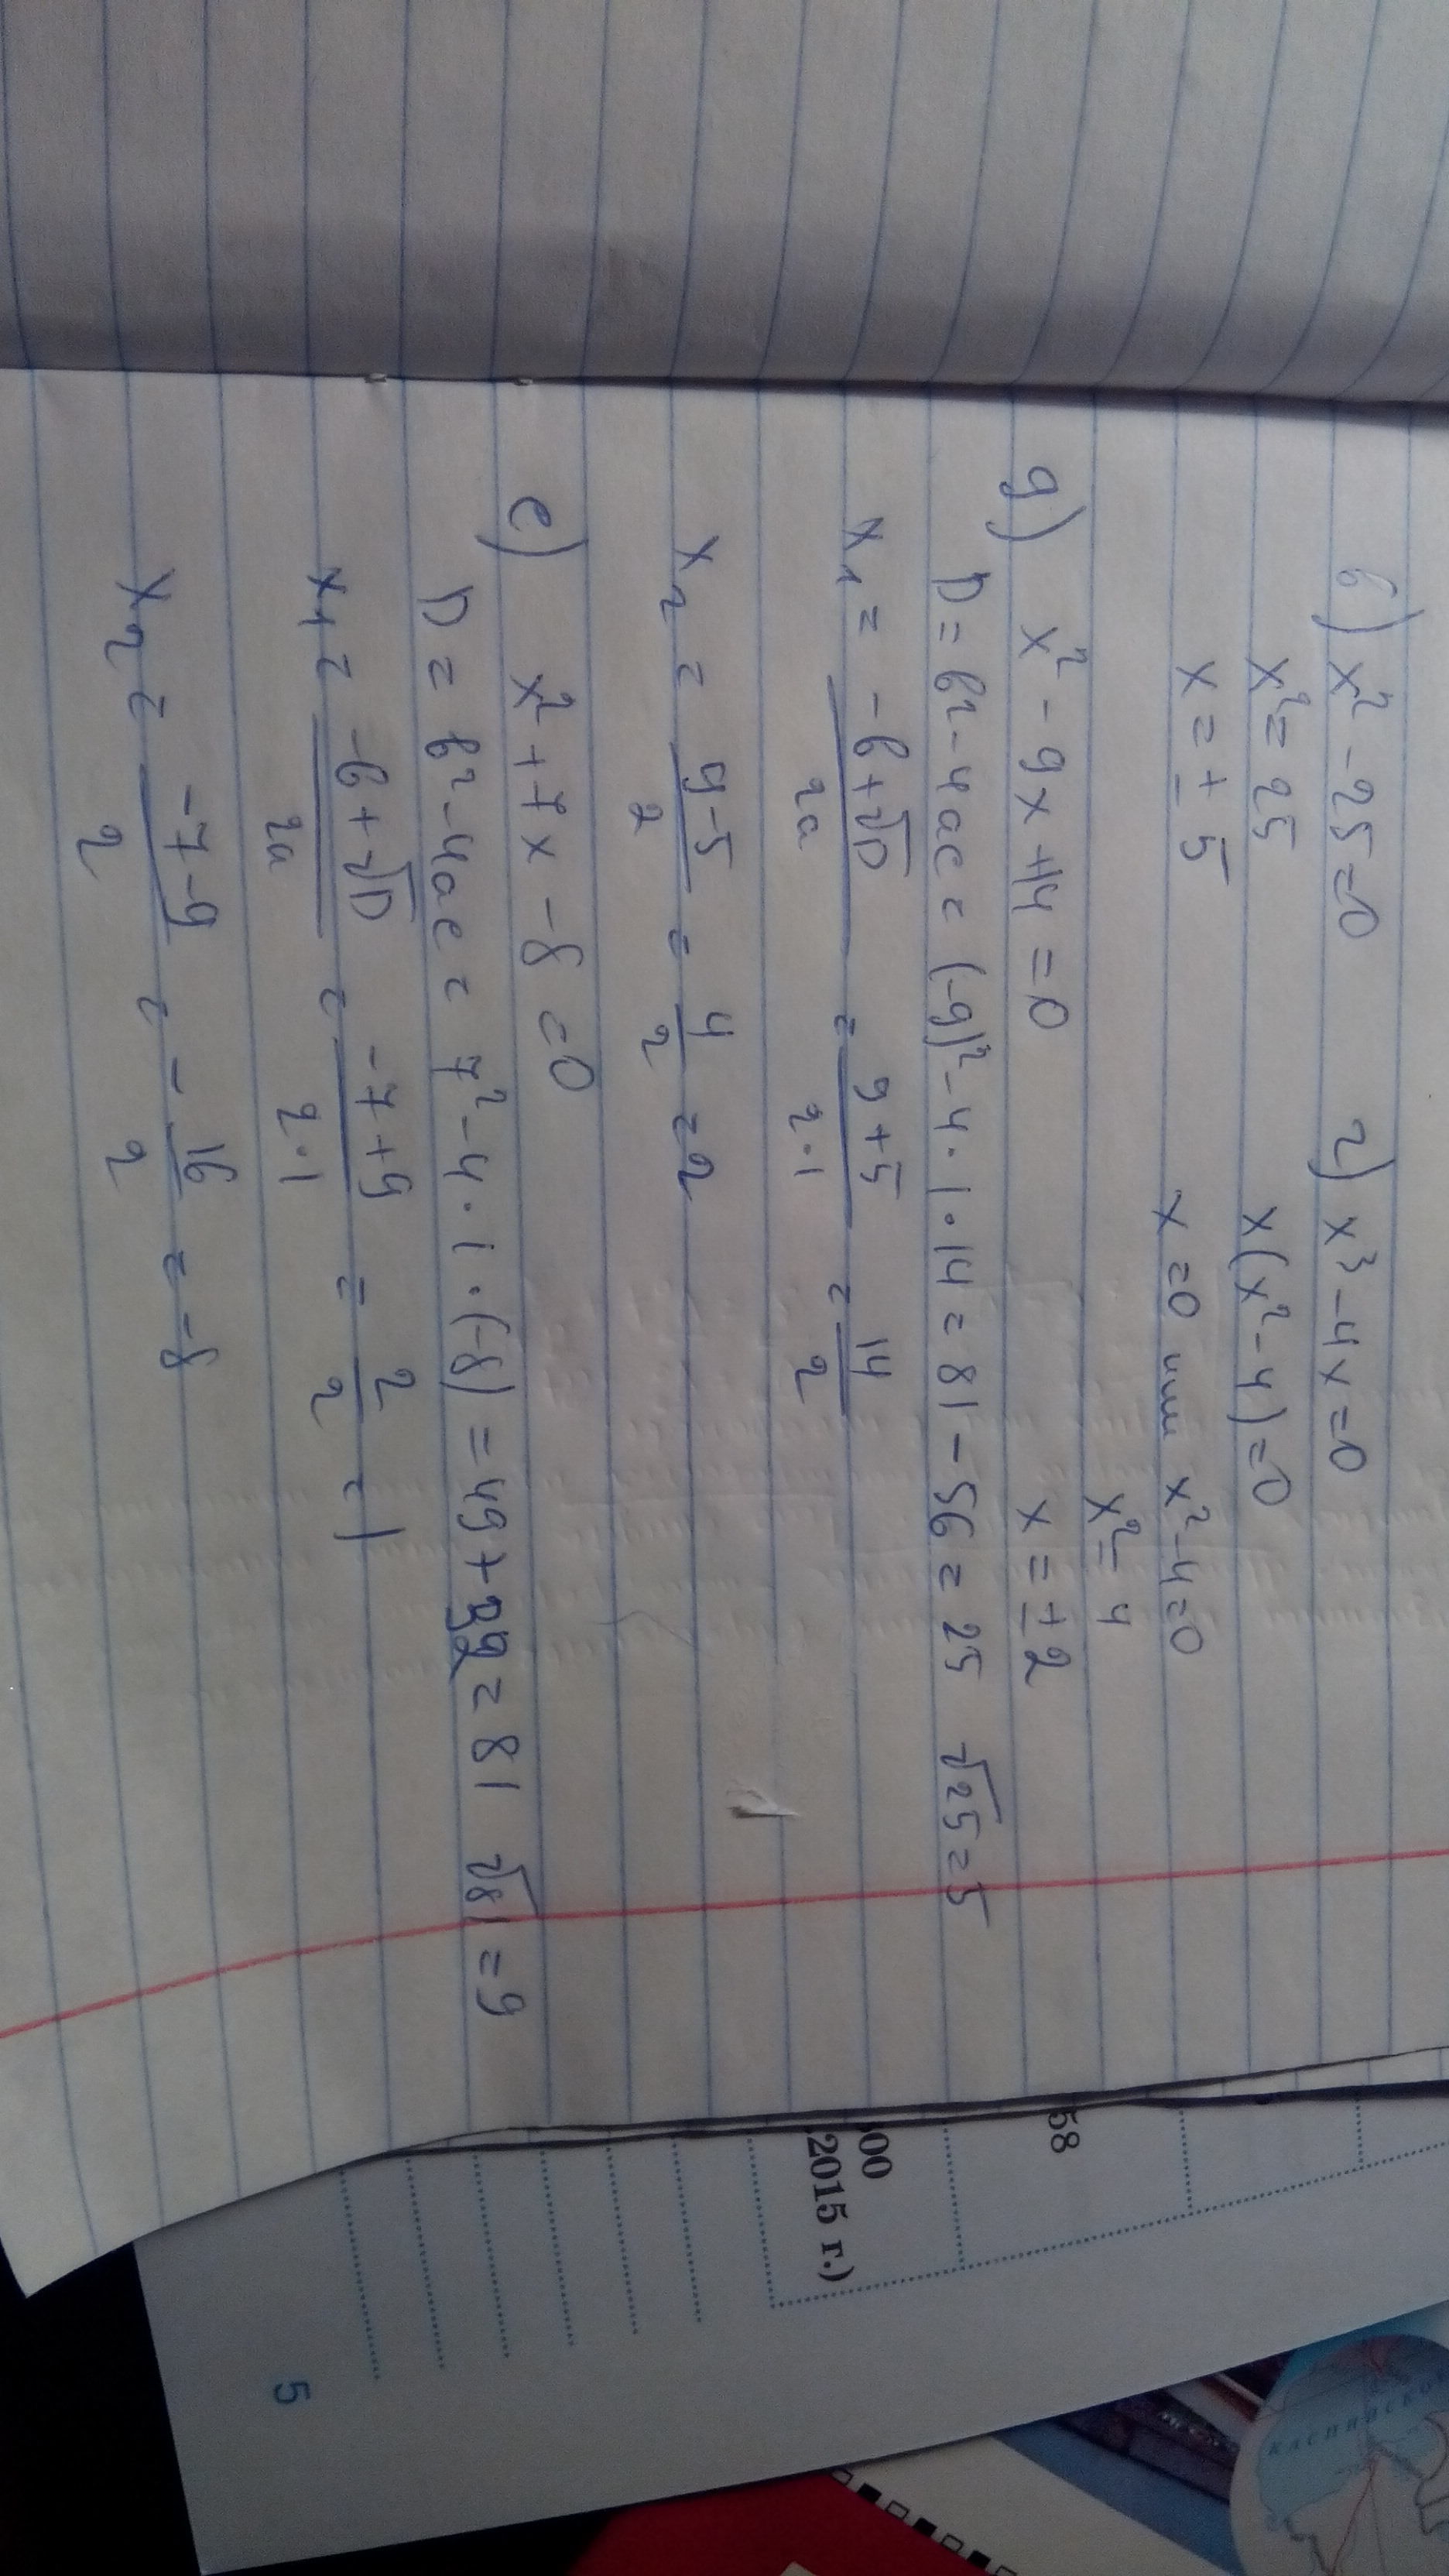 в) x² - 25 = 0 г) x³ - 4x = 0
x² = 25 x(x² - 4) = 0
x = ± 5 x = 0 или x² - 4 = 0
x² = 4
g) x² - 9x + 14 = 0 x = ± 2
D = b² - 4ac = (-9)² - 4 · 1 · 14 = 81 - 56 = 25 √25 = 5
x₁ = (-b + √D)/2a = (9 + 5)/(2 · 1) = 14/2
x₂ = (9 - 5)/2 = 4/2 = 2
e) x² + 7x - 8 = 0
D = b² - 4ac = 7² - 4 · 1 · (-8) = 49 + 32 = 81 √81 = 9
x₁ = (-b + √D)/2a = (-7 + 9)/(2 · 1) = 2/2 = 1
x₂ = (-7 - 9)/2 = - 16/2 = -8
58
00
2015 г.)
5
КАСПИЙСКО